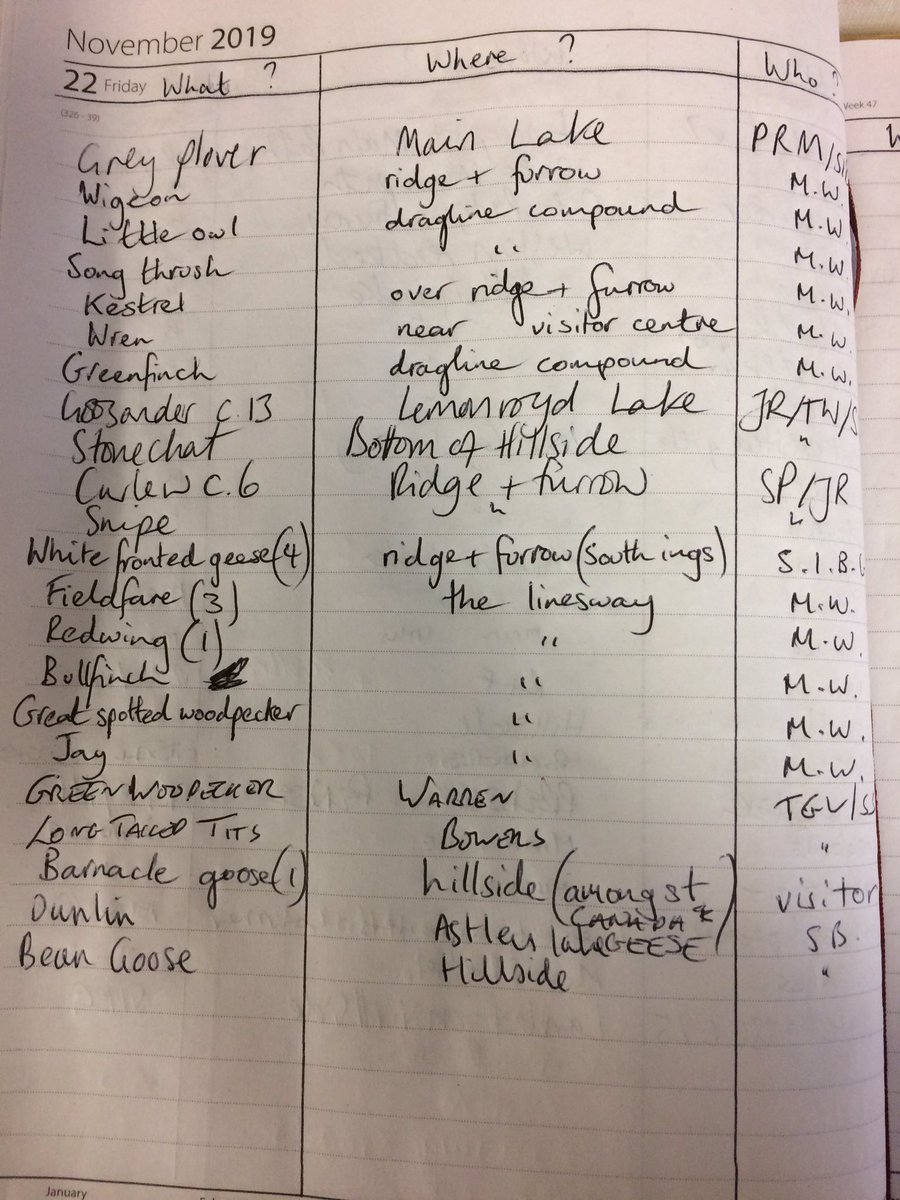 November 2019
22 Friday What ? Where ? Who ?
(326 - 39) Week 47
Grey plover Main Lake PRM/
Wigeon ridge + furrow M.W.
Little owl dragline compound M.W.
Song thrush " M.W.
Kestrel over ridge + furrow M.W.
Wren near visitor centre M.W.
Greenfinch dragline compound M.W.
Goosander c. 13 Lemonroyd Lake JR/TW/S
Stonechat Bottom of Hillside "
Curlew c. 6 Ridge + furrow SP/JR
Snipe " "
White fronted geese (4) ridge + furrow (South ings) S.I.B.
Fieldfare (3) the linesway M.W.
Redwing (1) " M.W.
Bullfinch " M.W.
Great spotted woodpecker " M.W.
Jay " M.W.
GREEN WOODPECKER WARREN
LONG TAILED TITS BOWERS "
Barnacle goose (1) hillside (amongst visitor
CANADA
Dunlin Astley lake GEESE) SB.
Bean Goose Hillside "
January